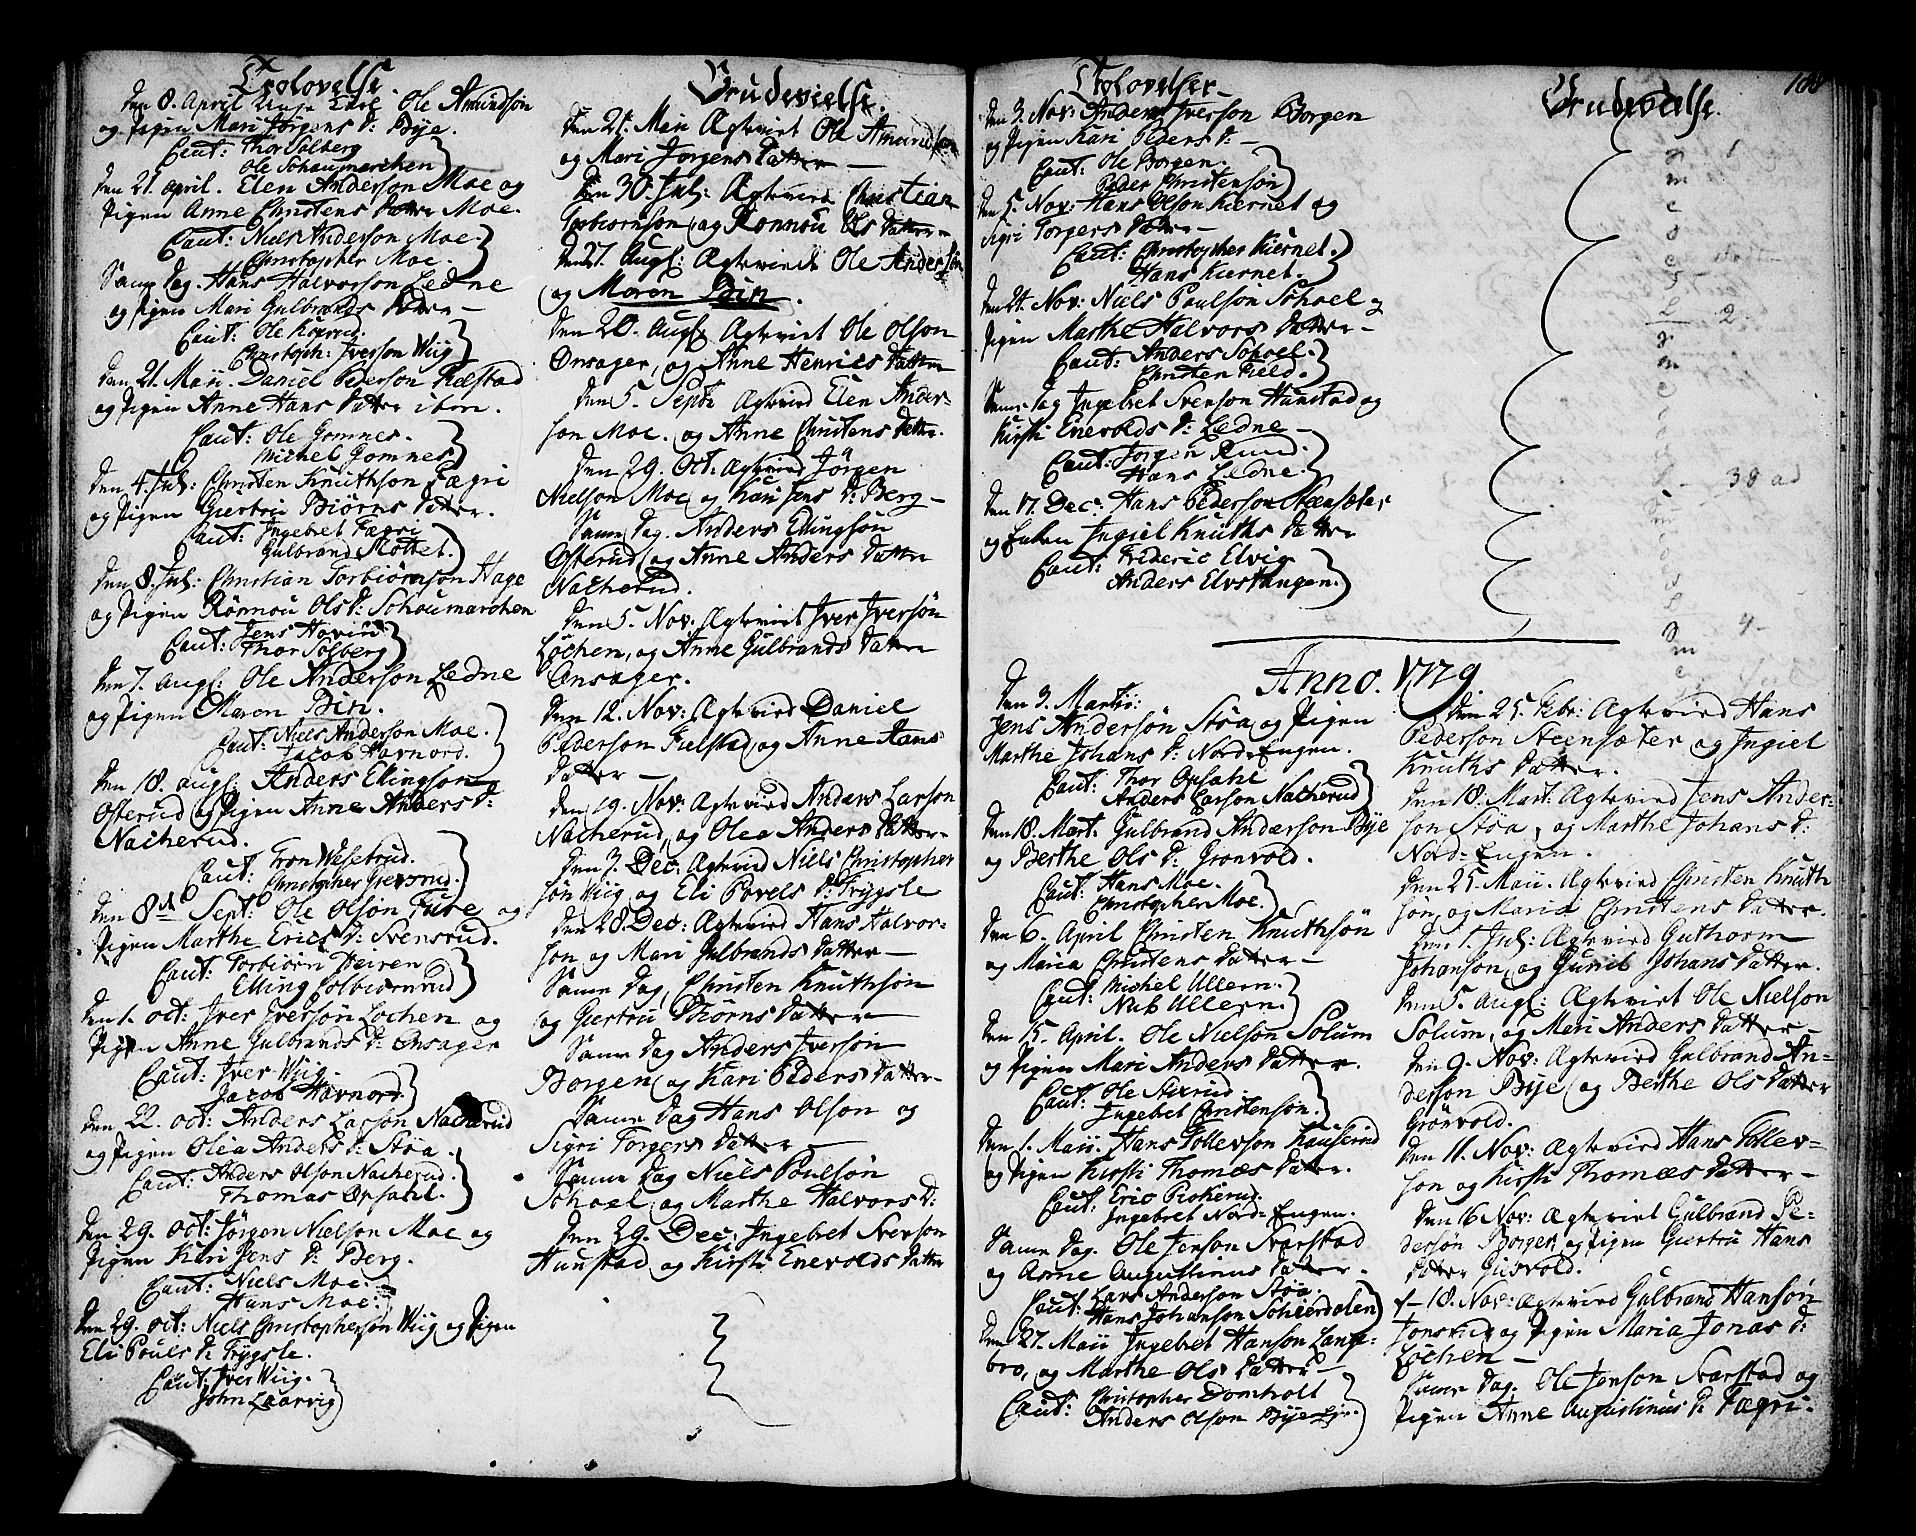 Trolovelse.
Den 8. April Unge Karl Ole Amundsøn
og Pigen Mari Jørgens D: Bye.
Caut: Thor Solberg
Ole Schaumarchen
Den 21. April. Elen Anderson Moe og
Pigen Anne Christens Datter Moe.
Caut: Niels Anderson Moe.
Christopher Moe.
Samme Dag. Hans Halvorson Ledne
og Pigen Mari Gulbrands Datter
Caut: Ole
Christoph: Iverson Wiig
Den 21. Maii. Daniel Pederson Fielstad
og Pigen Anne Hans Datter ibm.
Caut: Ole Gomnes.
Michel Gomnes
Den 4. Jul: Christen Knuthson Fægri
og Pigen Giertru Biørns Datter.
Caut: Ingebret Fægri
Gulbrand Mottet.
Den 8. Jul: Christian Torbiørnson Hage
og Pigen Rønnou Ols D: Schoumarchen
Caut: Jens Hovin
Thor Solberg
Den 7. Augl: Ole Anderson Ledne
og Pigen Maren Bin.
Caut: Niels Anderson Moe.
Jacob Havnord.
Den 18. Augl: Anders Elingson
Osterud og Pigen Anne Anders D:
Nacherud.
Caut: Tron Wesetrud.
Christopher Giersrud.
Den 8de Sept: Ole Olson Fure og
Pigen Marthe Erics D: Svensrud.
Caut: Torbiørn Heiren
Elling Solbiørnrud
Den 1. Oct: Iver Iversøn Lochen og
Pigen Anne Gulbrands D: Onsager
Caut: Iver Wiig.
Jacob Havnord
Den 22. Oct: Anders Larson Nacherud
og Pigen Olea Anders D: Støa.
Caut: Anders Olson Nacherud.
Thomas Opsahl.
Den 29. Oct: Jørgen Nielson Moe og
Pigen Kari Jens D: Berg.
Caut: Niels Moe.
Hans Moe.
Den 29. Oct: Niels Christopherson Wiig og Pigen
Eli Pouls D: Frygsle.
Caut: Iver Wiig.
John Laarvig
Brudevielse.
Den 21. Maii Ægteviet Ole Amundsøn
og Mari Jørgens Datter
Den 30. Jul: Ægtevied Christian
Torbiornson og Rønnou Ols Datter
Den 27. Augl: Ægteviedt Ole Andersøn
og Maren Bin.
Den 20. Augl Ægteviet Ole Olson
Onsager, og Anne Henrics Datter
Den 5. Septr Ægtevied Elen Ander-
son Moe. og Anne Christens Datter.
Den 29. Oct: Ægtevied Jørgen
Nielson Moe og Kari Jens D: Berg
Samme Dag. Anders Ellingsøn
Osterud og Anne Anders Datter
Nacherud.
Den 5. Nov. Ægteviet Iver Iversøn
Lochen, og Anne Gulbrands Datter
Onsager.
Den 12. Nov: Ægtevied Daniel
Pederson Fielstad og Anne Hans
Datter
Den 19. Nov: Ægtevied Anders Larson
Nacherud, og Olea Anders Datter
Den 3. Dec: Ægtevied Niels Christopher
søn Wiig og Eli Povels D: Frygsle
Den 28. Dec: Ægtevied Hans Halvor-
son og Mari Gulbrands Datter
Samme Dag, Christen Knuthsøn
og Giertru Biørns Datter
Samme Dag Anders Iversøn
Borgen og Kari Peders Datter
Samme Dag Hans Olson og
Sigri Torgers Datter
Samme Dag Niels Poulsøn
Schoel og Marthe Halvors D:
Den 29. Dec: Ingebret Svenson
Hunstad og Kirsti Enevolds Datter
Trolovelser
Den 3. Nov: Anders Iverson Borgen
og Pigen Kari Peders D:
Caut: Ole Borgen.
Peder Christensøn
Den 5. Nov: Hans Olson Kiernet og
Sigri Torgers Datter
Caut: Christopher Kiernet.
Hans Kiernet.
Den 21. Nov: Niels Poulson Schoel og
Pigen Marthe Halvors Datter
Caut: Anders Schoel.
Christen Field.
Samme Dag Ingebret Svenson Hunstad og
Kirsti Enevolds D: Ledne
Caut: Jorgen Rund.
Hans Ledne.
Den 17. Dec: Hans Pederson Steensæter
og Enken Ingiel Knuths Datter
Caut: Frideric Elvig
Anders Elvstangen.
Brudevielse.
Anno. 1779
Den 3. Martii:
Jens Andersøn Støa og Pigen
Marthe Johans D: Nord-Engen.
Caut: Thor Opsahl
Anders Larson Nacherud
Den 18. Mart. Gulbrand Anderson Bye
og Berthe Ols D: Gronvold.
Caut: Hans Moe.
Christopher Moe.
Den 6. April Christen Knuthsøn
og Maria Christens Datter
Caut: Michel Ullern.
Nub Ullern.
Den 15. April. Ole Nielson Solum
og Pigen Mari Anders Datter.
Caut: Ole Stixrud.
Ingebret Christenson.
Den 1. Maii. Hans Tollevson Kauserud
og Pigen Kirsti Thomæs Datter.
Caut: Eric Piokerud.
Ingebret Nord-Engen.
Samme Dag. Ole Jenson Svarstad
og Anne Augustinus Datter.
Caut: Lars Anderson Støa
Hans Johanson Schierdalen
Den 27. Maii Ingebret Hanson Lange-
bro, og Marthe Ols Datter
Caut: Christopher Domholt
Anders Olson Bye
Den 25. Febr: Ægtevied Hans
Pederson Steensæter og Ingiel
Knuths Datter.
Den 18. Mart: Ægtevied Jens Ander-
son Støa, og Marthe Johans D:
Nord-Engen.
Den 25. Maii. Ægtevied Christen Knuth
søn, og Maria Christens Datter.
Den 1. Jul: Ægtevied Guthorm
Johanson, og Gunil Johans Datter.
Den 5. Augl: Ægteviet Ole Nielson
Solum, og Mari Anders Datter
Den 9. Nov: Ægtevied Gulbrand An-
derson Bye og Berthe Ols Datter
Grönvold.
Den 11. Nov: Ægtevied Hans Tollev-
son og Kirsti Thomæs Datter
Den 16 Nov: Ægteviet Gulbrand Pe-
dersøn Borger og Pigen Giertru Hans
Datter Gusvold.
d. 18. Nov: Ægtevied Gulbrand Hansøn
Jonsrud og Pigen Maria Jonas D:
Lochen
Samme Dag. Ole Jenson Svarstad og
Pigen Anne Augustinus D: Fægri.